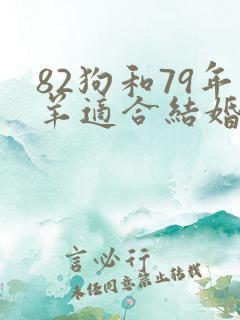 82狗和79年
羊適合結婚
言必行
未经同意禁止转载